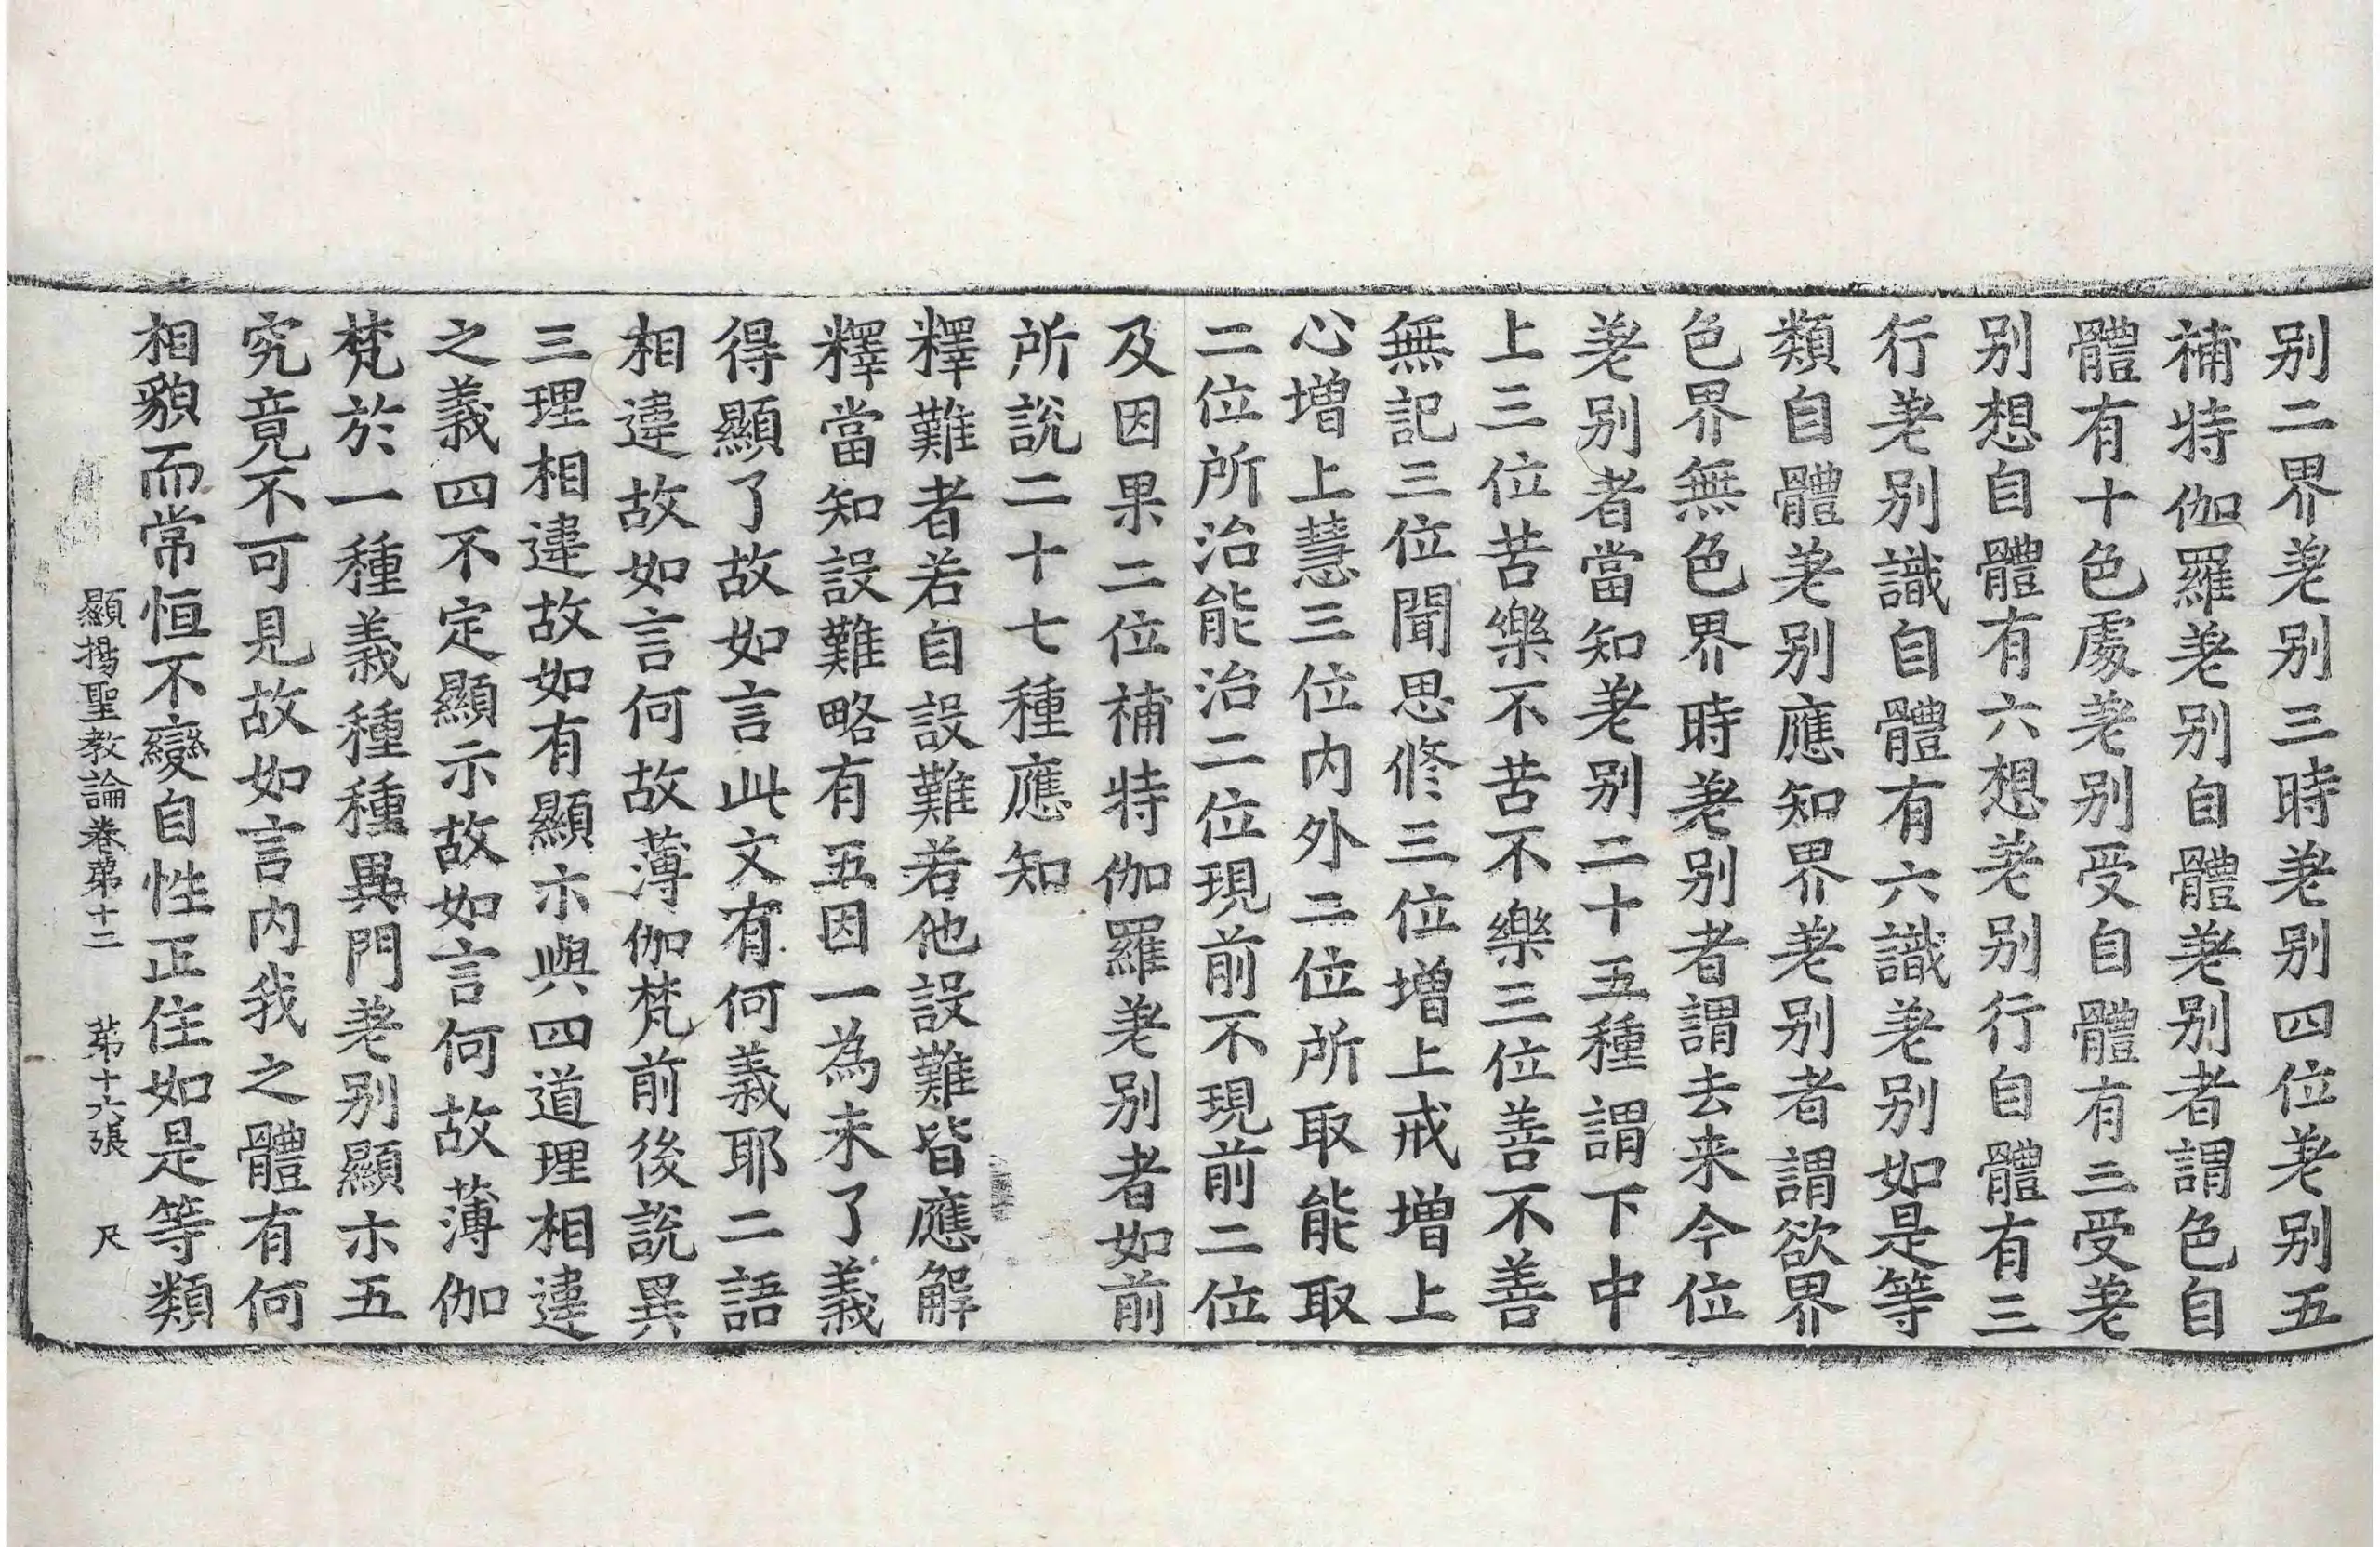 别二界差别三時差别四位差别五
補特伽羅差别自體差别者謂色自
體有十色處差别受自體有三受差
别想自體有六想差别行自體有三
行差别識自體有六識差别如是等
類自體差别應知界差别者謂欲界
色界無色界時差别者謂去来今位
差别者當知差别二十五種謂下中
上三位苦樂不苦不樂三位善不善
無記三位聞思修三位增上戒增上
心增上慧三位内外二位所取能取
二位所治能治二位現前不現前二位
及因果二位補特伽羅差别者如前
所說二十七種應知
釋難者若自設難若他設難皆應解
釋當知設難略有五因一為未了義
得顯了故如言此文有何義耶二語
相違故如言何故薄伽梵前後說異
三理相違故如有顯示與四道理相違
之義四不定顯示故如言何故薄伽
梵於一種義種種異門差别顯示五
究竟不可見故如言内我之體有何
相貌而常恒不變自性正住如是等類
顯揚聖教論卷第十二 第十六張 尺